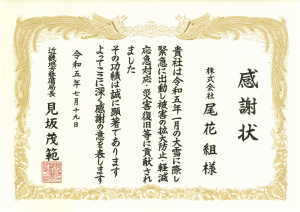 感謝状
株式会社 尾花組様
貴社は令和五年一月の大雪に際し
緊急に出動し被害の拡大防止・軽減
応急対応・災害復旧等に貢献され
ました
その功績は誠に顕著であります
よってここに深く感謝の意を表します
令和五年七月十九日
近畿地方整備局長 見坂茂範